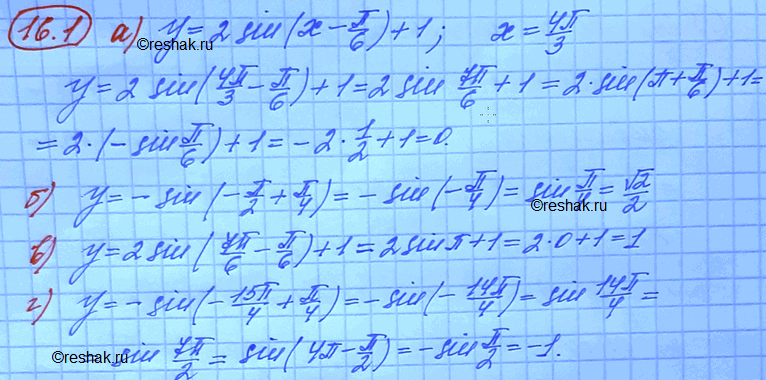 16.1 а) y = 2 sin(x - π/6) + 1; x = 4π/3
©reshak.ru
y = 2 sin(4π/3 - π/6) + 1 = 2 sin 7π/6 + 1 = 2·sin(π + π/6) + 1 =
= 2·(-sin π/6) + 1 = -2·1/2 + 1 = 0.
б) y = - sin(-π/2 + π/4) = - sin(-π/4) = sin π/4 = √2/2
©reshak.ru
в) y = 2 sin(7π/6 - π/6) + 1 = 2 sin π + 1 = 2·0 + 1 = 1
г) y = - sin(-15π/4 + π/4) = - sin(-14π/4) = sin 14π/4 =
sin 7π/2 = sin(4π - π/2) = - sin π/2 = -1.
©reshak.ru